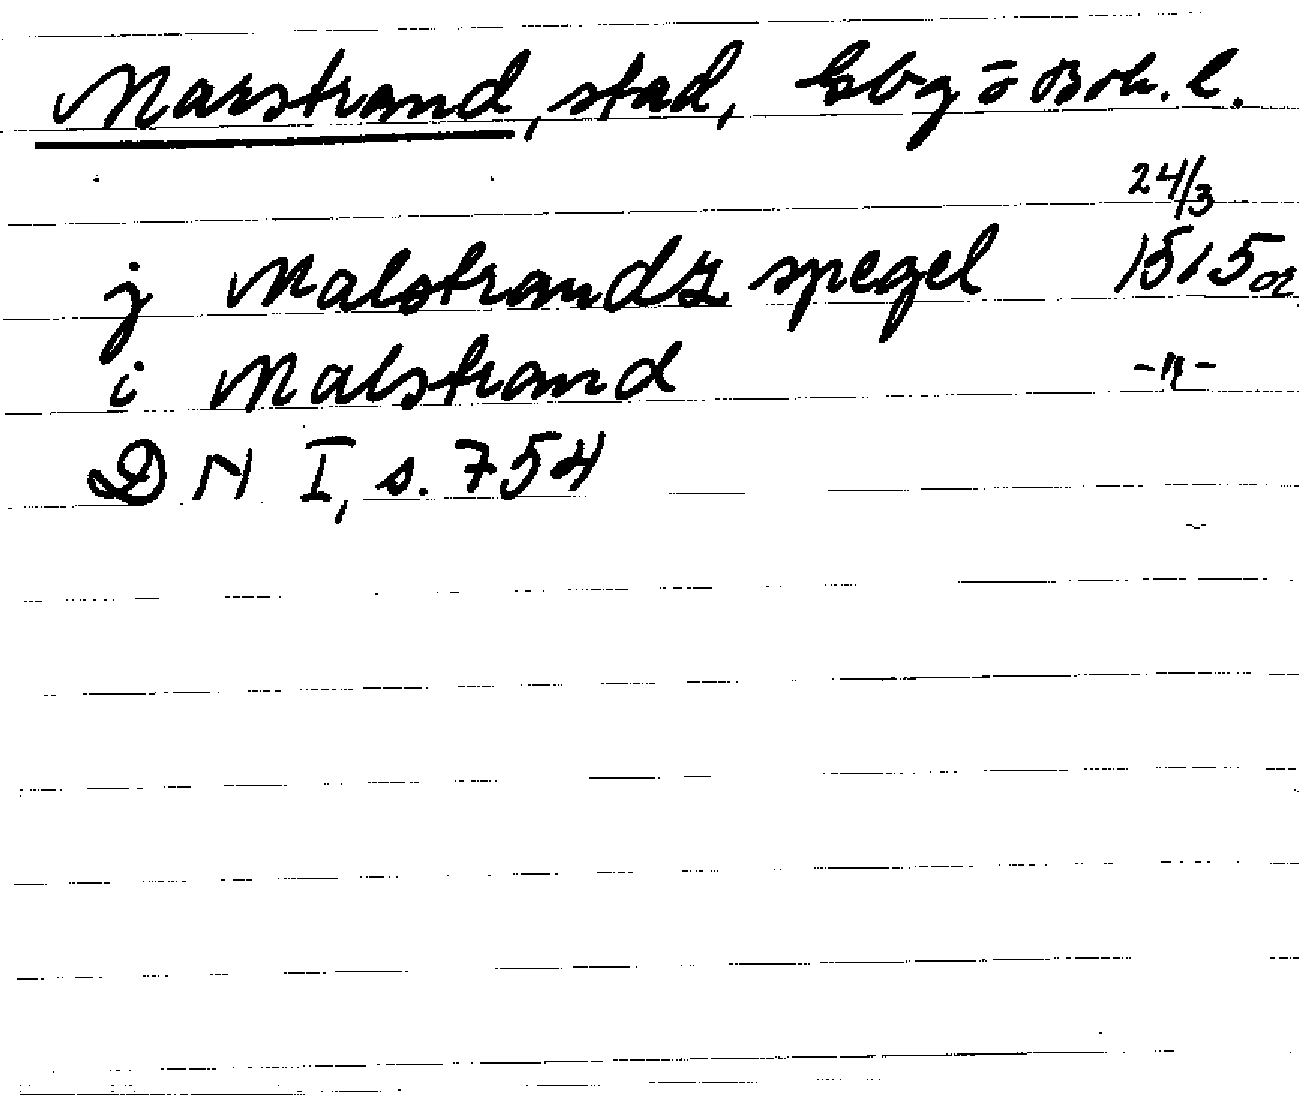 Marstrand, stad, Gbg o Boh. l.
24/3
j Malstrandz spegel 1515 or
i Malstrand -"-
DN I, s. 754